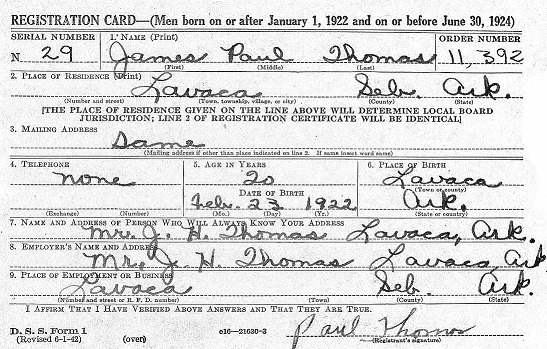 REGISTRATION CARD—(Men born on or after January 1, 1922 and on or before June 30, 1924)
SERIAL NUMBER 1. NAME (Print) ORDER NUMBER
N 29 James Paul Thomas 11,392
(First) (Middle) (Last)
2. PLACE OF RESIDENCE (Print)
Lavaca Seb. Ark.
(Number and street) (Town, township, village, or city) (County) (State)
[THE PLACE OF RESIDENCE GIVEN ON THE LINE ABOVE WILL DETERMINE LOCAL BOARD
JURISDICTION; LINE 2 OF REGISTRATION CERTIFICATE WILL BE IDENTICAL]
3. MAILING ADDRESS
Same
(Mailing address if other than place indicated on line 2. If same insert word same)
4. TELEPHONE 5. AGE IN YEARS 6. PLACE OF BIRTH
none 20 Lavaca
DATE OF BIRTH (Town or county)
Feb. 23 1922 Ark.
(Exchange) (Number) (Mo.) (Day) (Yr.) (State or country)
7. NAME AND ADDRESS OF PERSON WHO WILL ALWAYS KNOW YOUR ADDRESS
Mr. J. H. Thomas Lavaca, Ark.
8. EMPLOYER'S NAME AND ADDRESS
Mr. J. H. Thomas Lavaca, Ark
9. PLACE OF EMPLOYMENT OR BUSINESS
Lavaca Seb. Ark.
(Number and street or R. F. D. number) (Town) (County) (State)
I AFFIRM THAT I HAVE VERIFIED ABOVE ANSWERS AND THAT THEY ARE TRUE.
D. S. S. Form 1 c16—21630-3 Paul Thomas
(Revised 6-1-42) (over) (Registrant's signature)